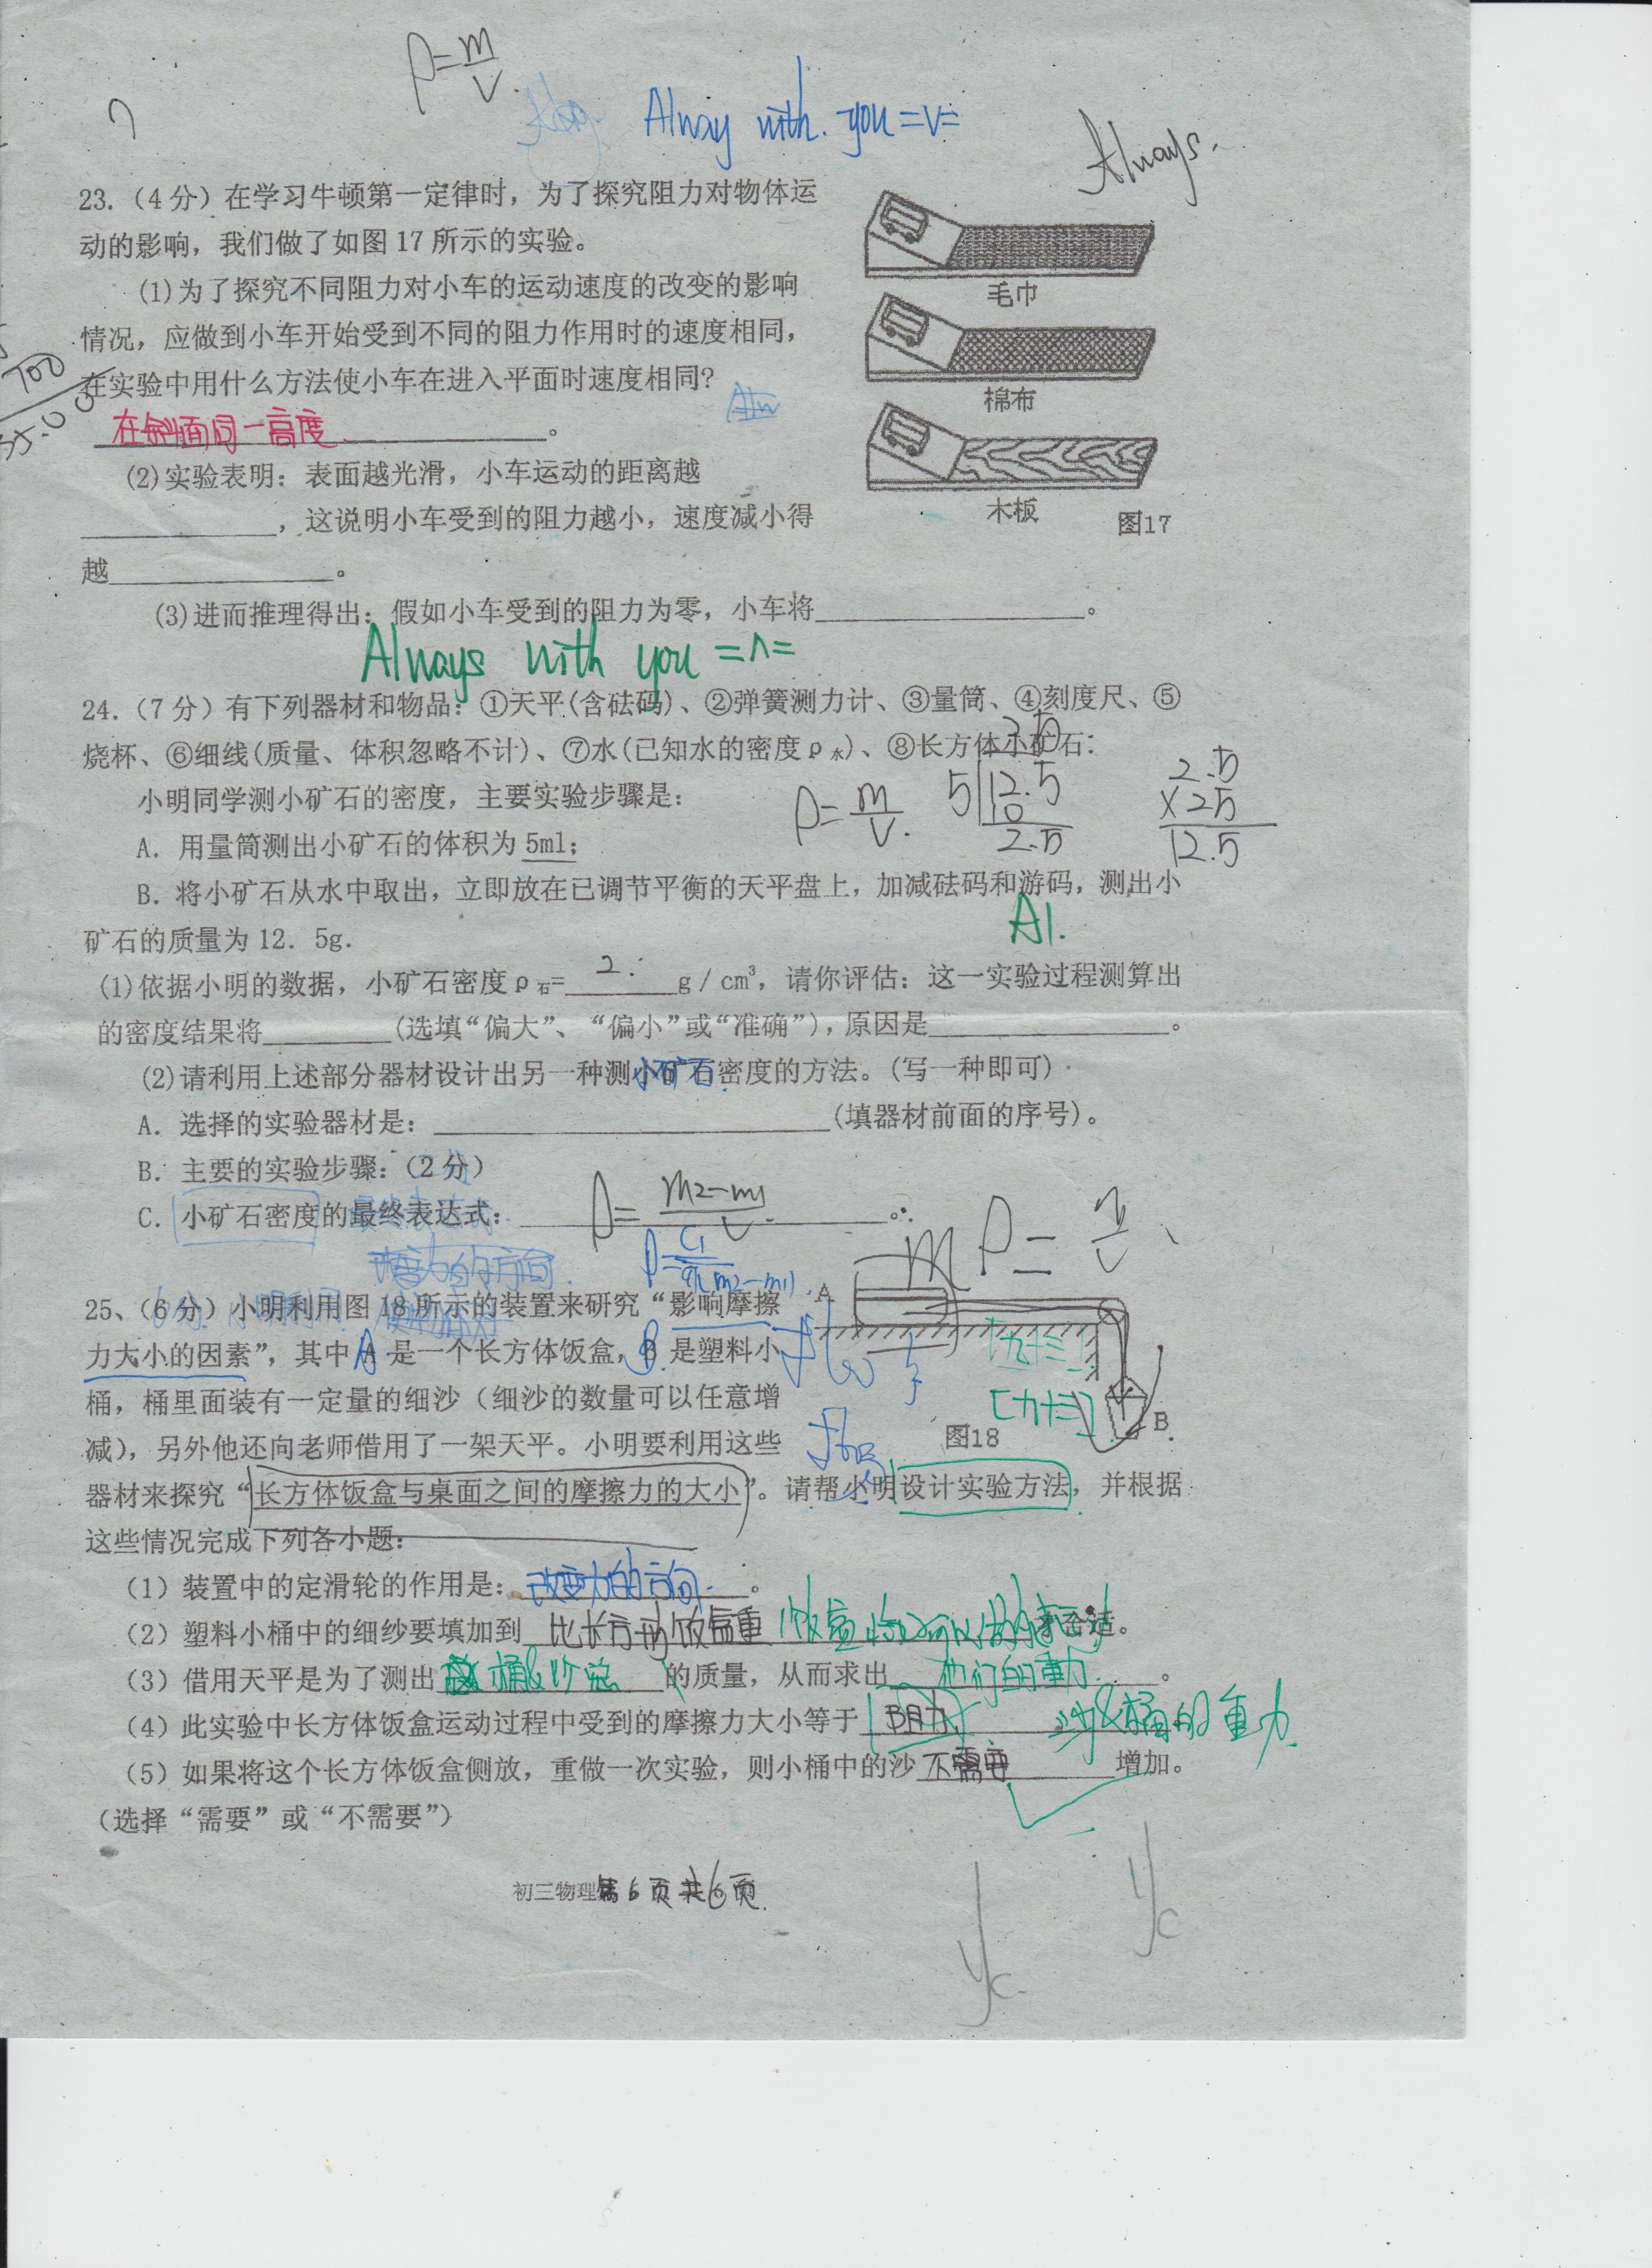 ρ=m/V
Alway with. you =v=
Always.
23.（4分）在学习牛顿第一定律时，为了探究阻力对物体运
动的影响，我们做了如图17所示的实验。
(1)为了探究不同阻力对小车的运动速度的改变的影响
情况，应做到小车开始受到不同的阻力作用时的速度相同，
在实验中用什么方法使小车在进入平面时速度相同?
在斜面同一高度。
(2)实验表明：表面越光滑，小车运动的距离越
，这说明小车受到的阻力越小，速度减小得
越。
(3)进而推理得出：假如小车受到的阻力为零，小车将。
毛巾
棉布
木板
图17
Always with you =^=
24.（7分）有下列器材和物品：①天平(含砝码)、②弹簧测力计、③量筒、④刻度尺、⑤
烧杯、⑥细线(质量、体积忽略不计)、⑦水(已知水的密度ρ水)、⑧长方体小矿石：
小明同学测小矿石的密度，主要实验步骤是：
A. 用量筒测出小矿石的体积为5ml；
B. 将小矿石从水中取出，立即放在已调节平衡的天平盘上，加减砝码和游码，测出小
矿石的质量为12. 5g.
ρ=m/V.
5 12.5
10
2.5
2.5
×25
12.5
Al.
(1)依据小明的数据，小矿石密度ρ石=2.g/cm³，请你评估：这一实验过程测算出
的密度结果将(选填“偏大”、“偏小”或“准确”)，原因是。
(2)请利用上述部分器材设计出另一种测小矿石密度的方法。(写一种即可)
A. 选择的实验器材是：(填器材前面的序号)。
B. 主要的实验步骤：(2分)
C. 小矿石密度的最终表达式：ρ=m2-m1/V。
25、（6分）小明利用图18所示的装置来研究“影响摩擦
力大小的因素”，其中A是一个长方体饭盒，B是塑料小
桶，桶里面装有一定量的细沙（细沙的数量可以任意增
减），另外他还向老师借用了一架天平。小明要利用这些
器材来探究“长方体饭盒与桌面之间的摩擦力的大小”。请帮小明设计实验方法，并根据
这些情况完成下列各小题：
A
B
图18
（1）装置中的定滑轮的作用是：改变力的方向。
（2）塑料小桶中的细纱要填加到比长方形饭盒重合适。
（3）借用天平是为了测出桶&沙总的质量，从而求出他们的重力。
（4）此实验中长方体饭盒运动过程中受到的摩擦力大小等于阻力 沙&桶的重力
（5）如果将这个长方体饭盒侧放，重做一次实验，则小桶中的沙不需要增加。
（选择“需要”或“不需要”）
初三物理第6页共6页